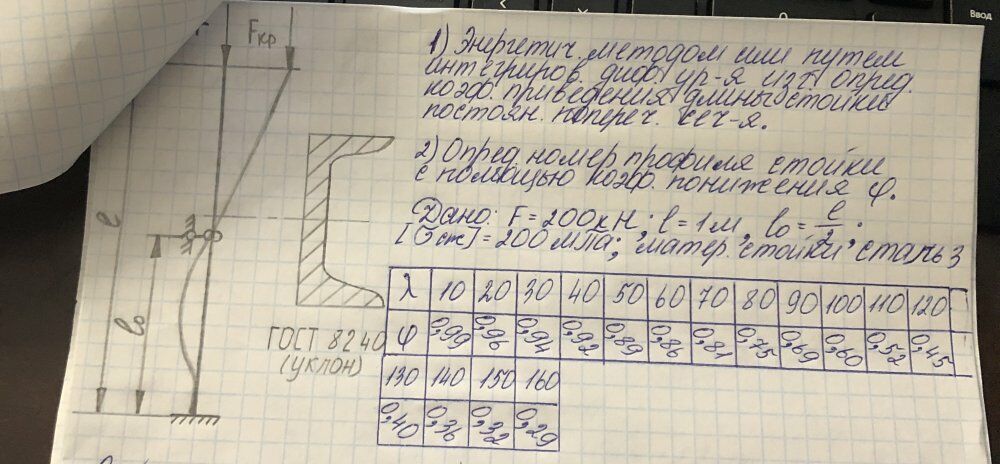 Ввод
Fкр
1) Энергетич. методом или путем
интегриров. диф. ур-я изг. опред.
коэф. приведения длины стойки
постоян. попереч. сеч-я.
2) Опред. номер профиля стойки
с помощью коэф. понижения φ.
Дано: F=200кН; l=1м, l₀=l/2;
[σсж]=200МПа; матер. стойки, сталь 3
l
l₀
ГОСТ 8240
(уклон)
λ 10 20 30 40 50 60 70 80 90 100 110 120
φ 0,99 0,96 0,94 0,92 0,89 0,86 0,81 0,75 0,69 0,60 0,52 0,45
130 140 150 160
0,40 0,36 0,32 0,29